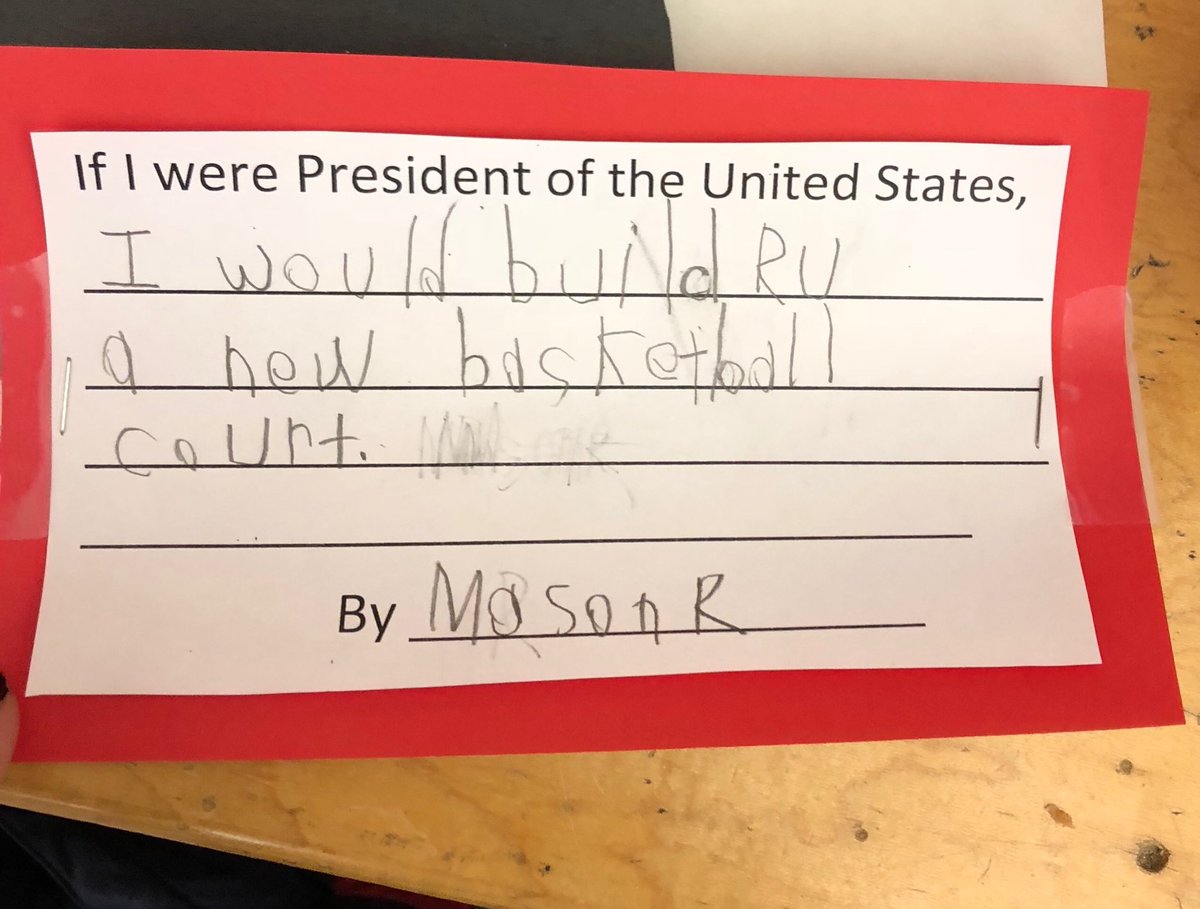 If I were President of the United States,
I would build RU
a new basketball
court.
By Mason R